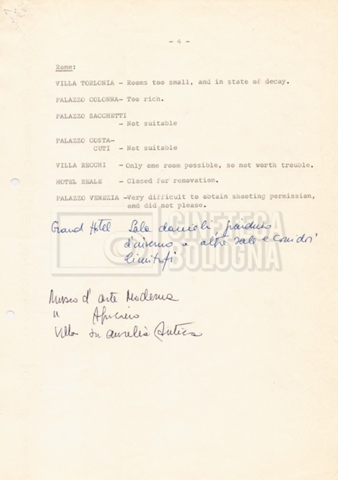 - 4 -
Rome:
VILLA TORLONIA - Rooms too small, and in state of decay.
PALAZZO COLONNA - Too rich.
PALAZZO SACCHETTI
- Not suitable
PALAZZO COSTA-
CUTI - Not suitable
VILLA - Only one room possible, so not worth trouble.
HOTEL REALE - Closed for renovation.
PALAZZO VENEZIA - Very difficult to obtain shooting permission,
and did not please.
Grand Hotel Sala da giardino
d'inverno e altre sale e corridoi
limitrofi
Museo d'arte Moderna
"
Villa su aurelia Antica
CINETECA
BOLOGNA